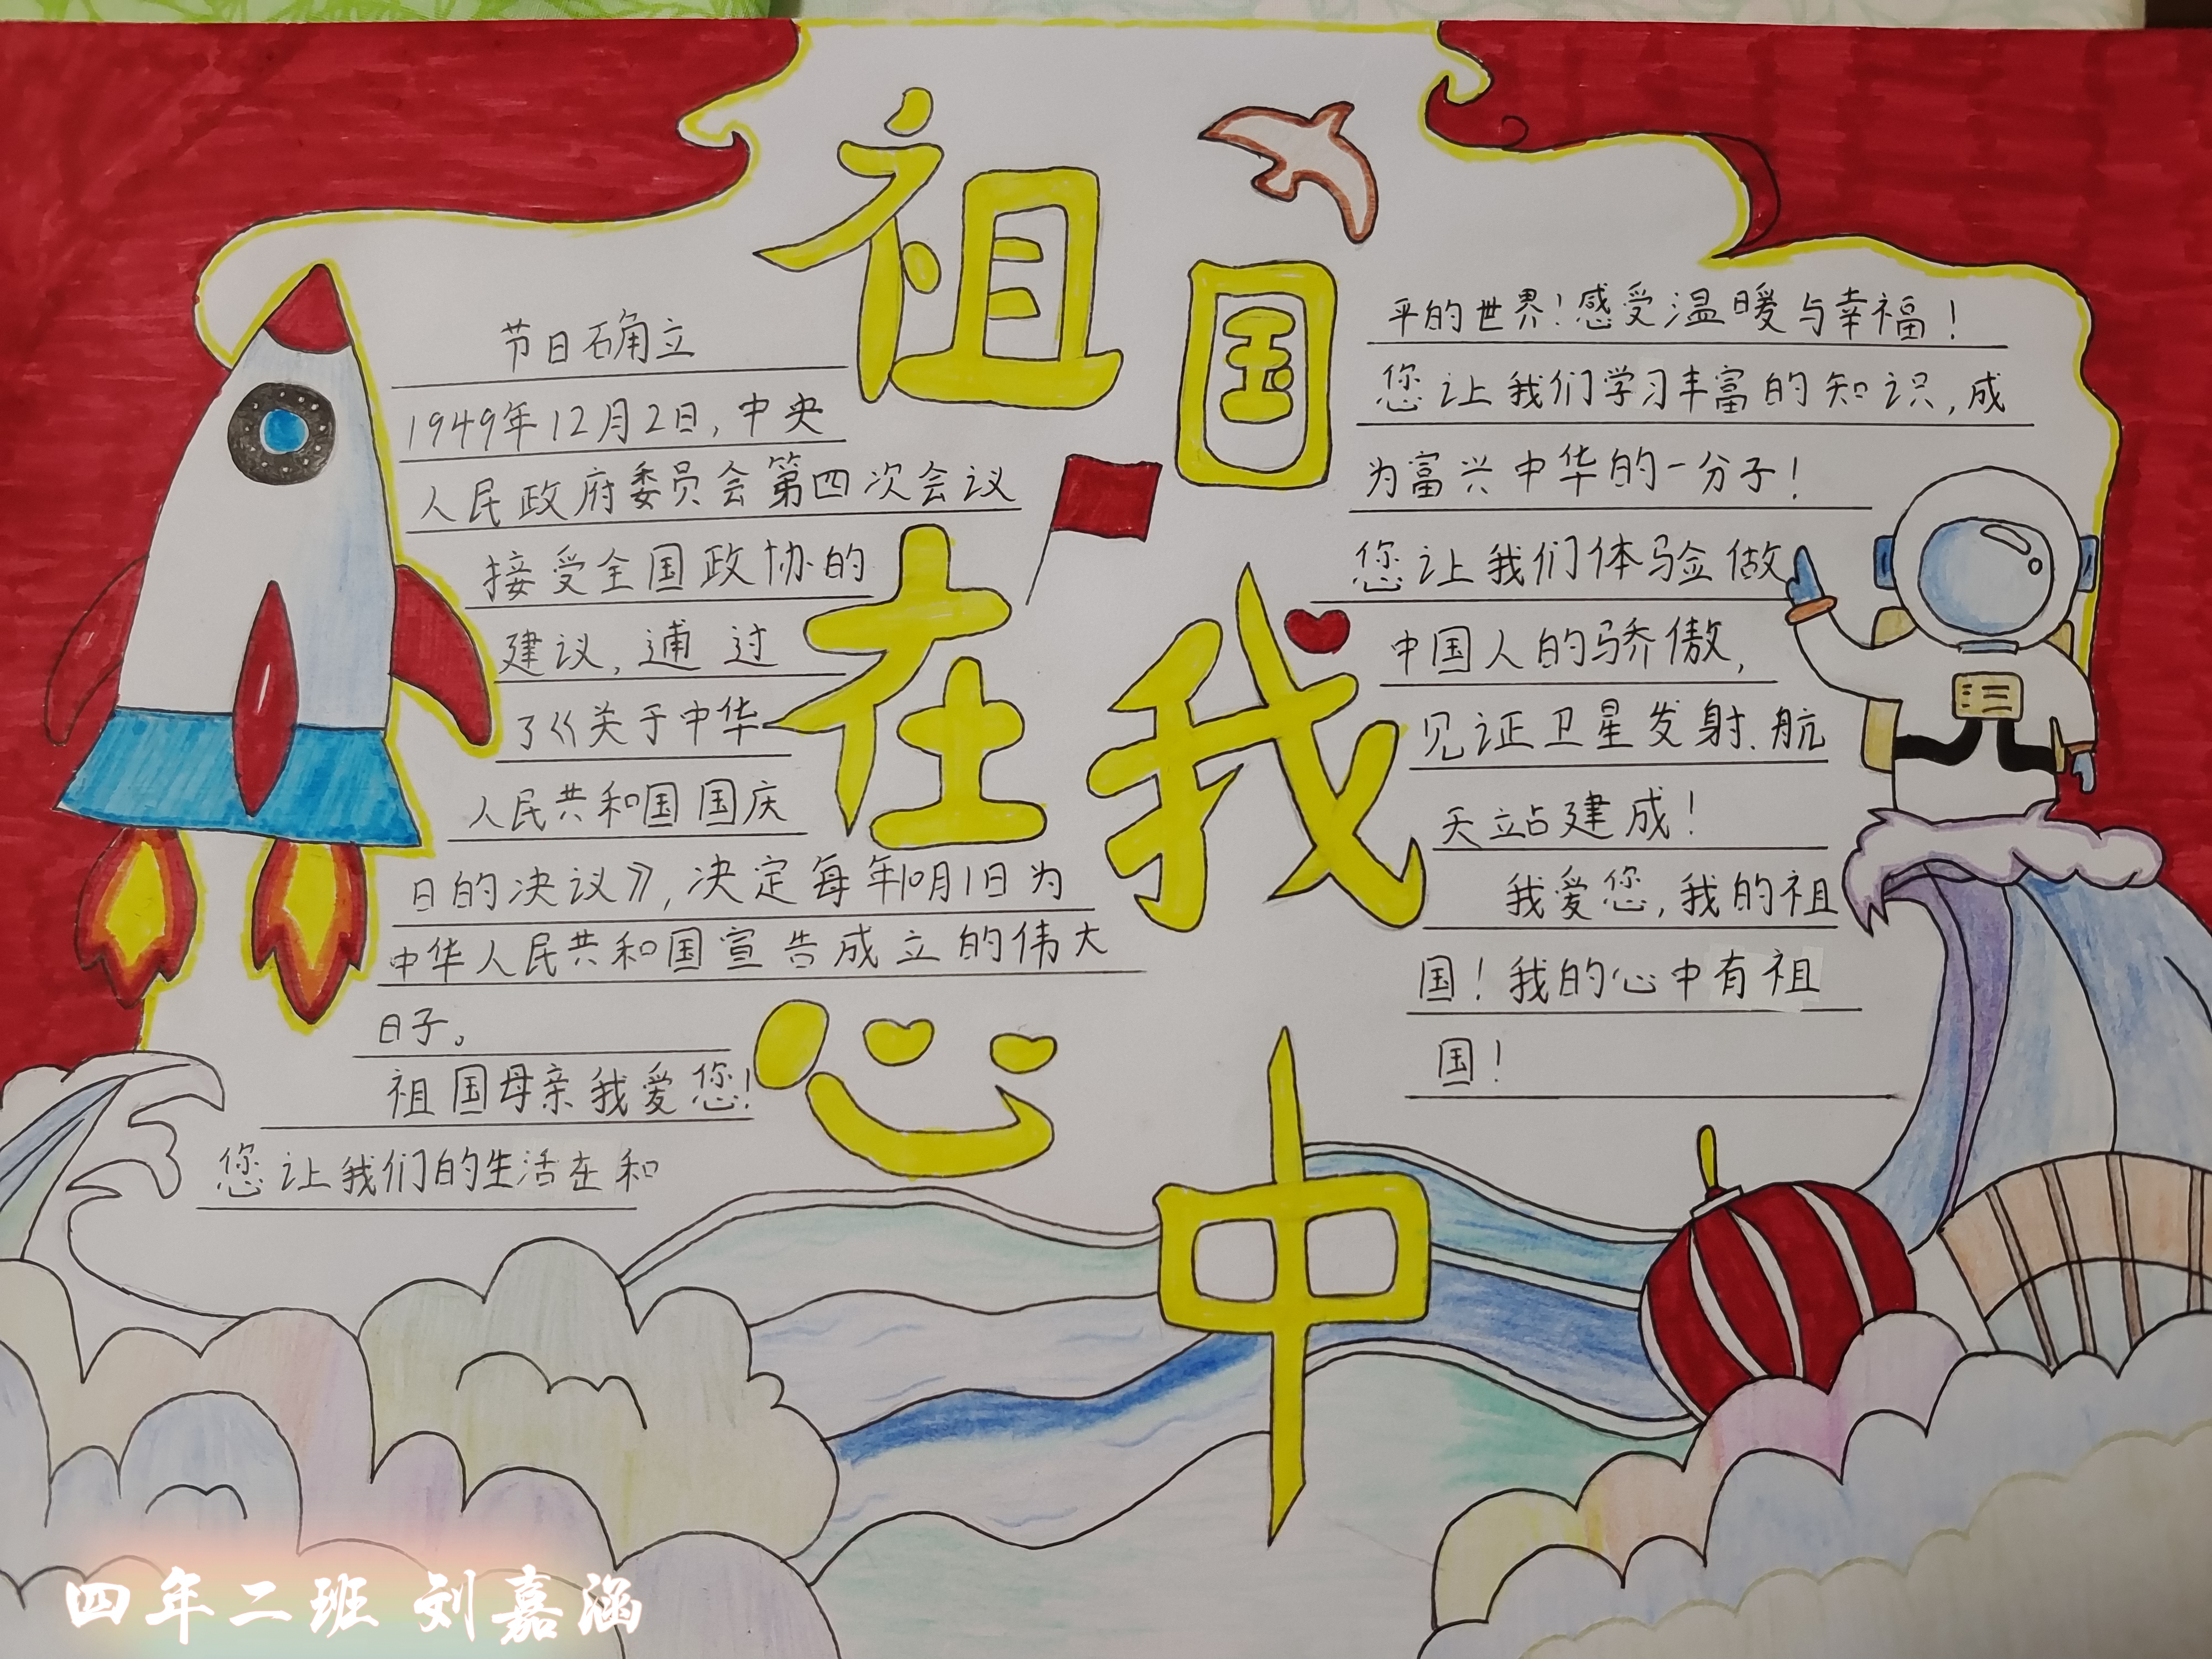 祖国在我心中
节日确立
1949年12月2日,中央
人民政府委员会第四次会议
接受全国政协的
建议,通过
了《关于中华
人民共和国国庆
日的决议》,决定每年10月1日为
中华人民共和国宣告成立的伟大
日子。
祖国母亲我爱您!
您让我们的生活在和
平的世界!感受温暖与幸福!
您让我们学习丰富的知识,成
为富兴中华的一分子!
您让我们体验做
中国人的骄傲,
见证卫星发射、航
天站建成!
我爱您,我的祖
国!我的心中有祖
国!
四年二班 刘嘉涵